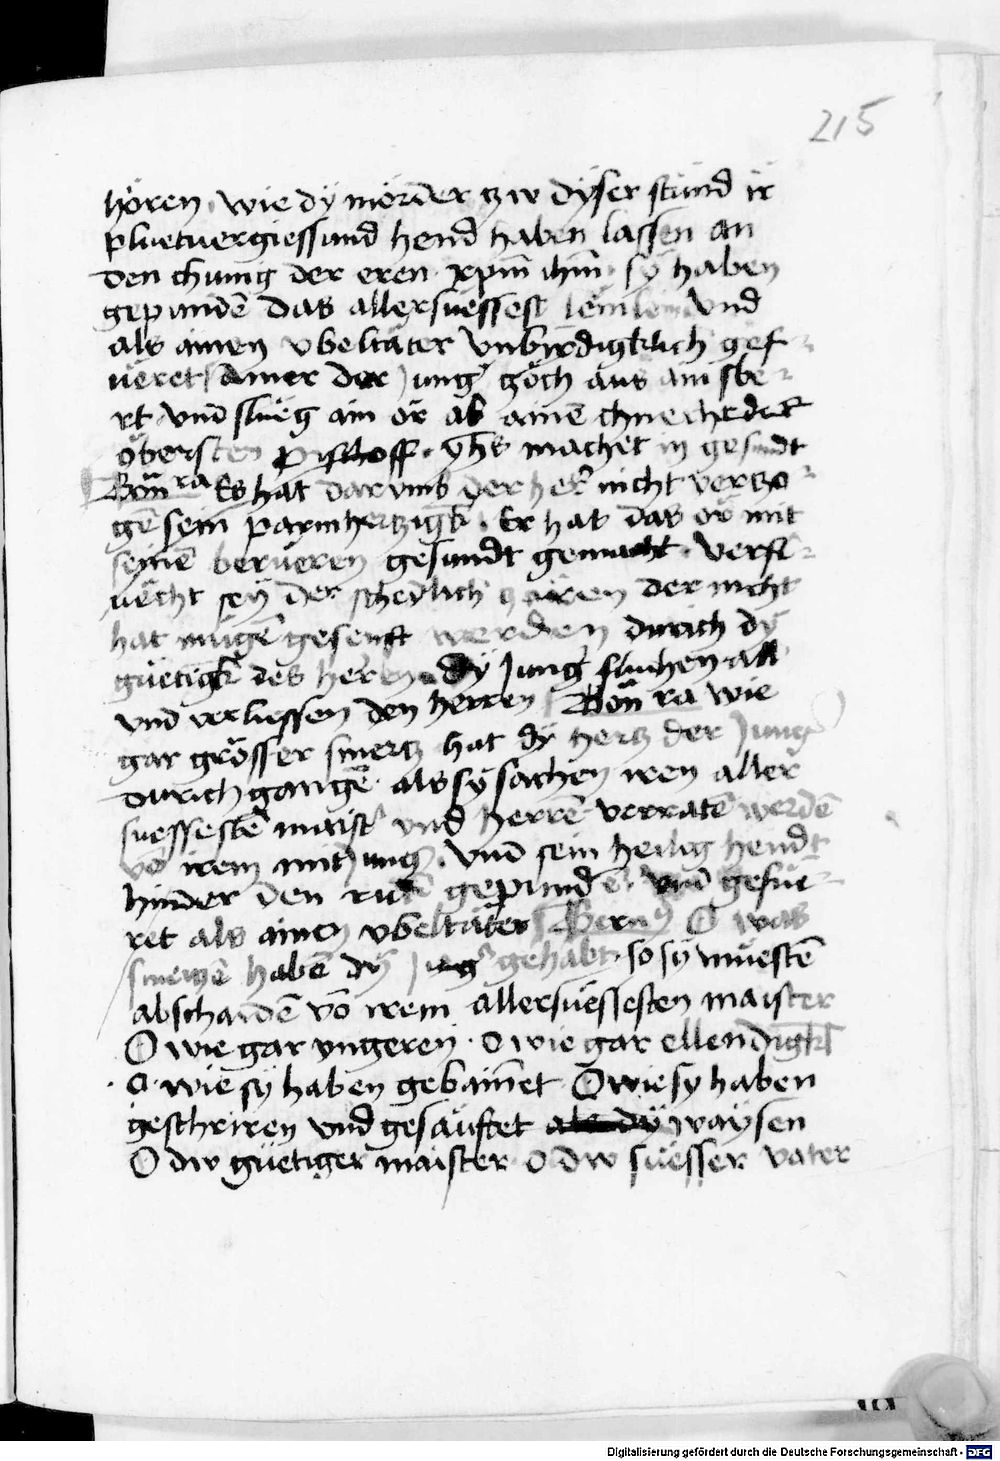 215
hören · wie dÿ mörder tzw dÿser stünd ir
pluetuergiessund hend haben lassen an
den chunig der eren · xpm̄ ihm̄ · sÿ haben
gepundē das allersuessest lemlein vnd
als ainen vbeltäter vnbirdigklich gef
üeret Ainer der Jung' zoch aus ain sbe
rt vnd slueg ain or ab ainē chnecht der
öbersten Pischoff · yhs machet in gesundt
Bon̄ ra Es hat darumb der her nicht vertzo
gē sein parmhertzigk · Er hat das or mit
seinē berüeren gesundt gemacht · verfl
uecht seÿ der schedlich zoren der nicht
hat mügē gesenft werden durich dÿ
güetigk des herren · dÿ Jung fluchen all
vnd verliessen den herren Bon̄ ra wie
gar grösser smertz hat dÿ hertz der Jung'
durich gangē · als sÿ sachen iren aller
suessestē maist' vnd herrē verratē werdē
vō irem mitjung' · vnd sein heilig hendt
hinder den ruckē gepundē vnd gefüe
ret als ainen vbeltäter Bern' O was
smertzē habē dÿ Jung' gehabt · so sÿ muestē
abschaidē vō irem allersüessesten maister
O wie gar vngeren · o wie gar ellendigkl
· o · wie sy haben gebainet · O wie sy haben
geschriren vnd gesäuftet als dÿ waÿsen
O dw güetiger maister · o dw süesser vater
Digitalisierung gefördert durch die Deutsche Forschungsgemeinschaft - DFG